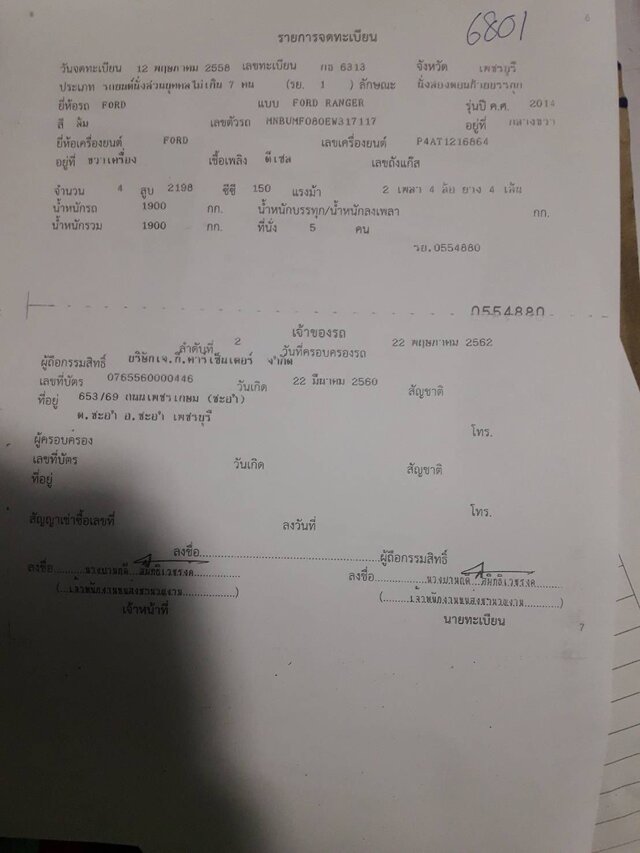 6801
6
รายการจดทะเบียน
วันจดทะเบียน 12 พฤษภาคม 2558 เลขทะเบียน กอ 6313 จังหวัด เพชรบุรี
ประเภท รถยนต์นั่งส่วนบุคคลไม่เกิน 7 คน (รย. 1 ) ลักษณะ นั่งสองตอนท้ายบรรทุก
ยี่ห้อรถ FORD แบบ FORD RANGER รุ่นปี ค.ศ. 2014
สี ส้ม เลขตัวรถ MNBUMF080EW317117 อยู่ที่ กลางขวา
ยี่ห้อเครื่องยนต์ FORD เลขเครื่องยนต์ P4AT1216864
อยู่ที่ ขวาเครื่อง เชื้อเพลิง ดีเซล เลขถังแก๊ส
จำนวน 4 สูบ 2198 ซีซี 150 แรงม้า 2 เพลา 4 ล้อ ยาง 4 เส้น
น้ำหนักรถ 1900 กก. น้ำหนักบรรทุก/น้ำหนักลงเพลา กก.
น้ำหนักรวม 1900 กก. ที่นั่ง 5 คน
รย.0554880
0554880
เจ้าของรถ
ลำดับที่ 2 วันที่ครอบครองรถ 22 พฤษภาคม 2562
ผู้ถือกรรมสิทธิ์ บริษัทเจ.ที.คาร์เซ็นเตอร์ จำกัด
เลขที่บัตร 0765560000446 วันเกิด 22 มีนาคม 2560 สัญชาติ
ที่อยู่ 653/69 ถนนเพชรเกษม (ชะอำ)
ต.ชะอำ อ.ชะอำ เพชรบุรี
โทร.
ผู้ครอบครอง
เลขที่บัตร วันเกิด สัญชาติ
ที่อยู่
โทร.
สัญญาเช่าซื้อเลขที่ ลงวันที่
ลงชื่อ ผู้ถือกรรมสิทธิ์
ลงชื่อ ลงชื่อ
(เจ้าพนักงานขนส่งชำนาญงาน) (เจ้าพนักงานขนส่งชำนาญงาน)
เจ้าหน้าที่ นายทะเบียน
7